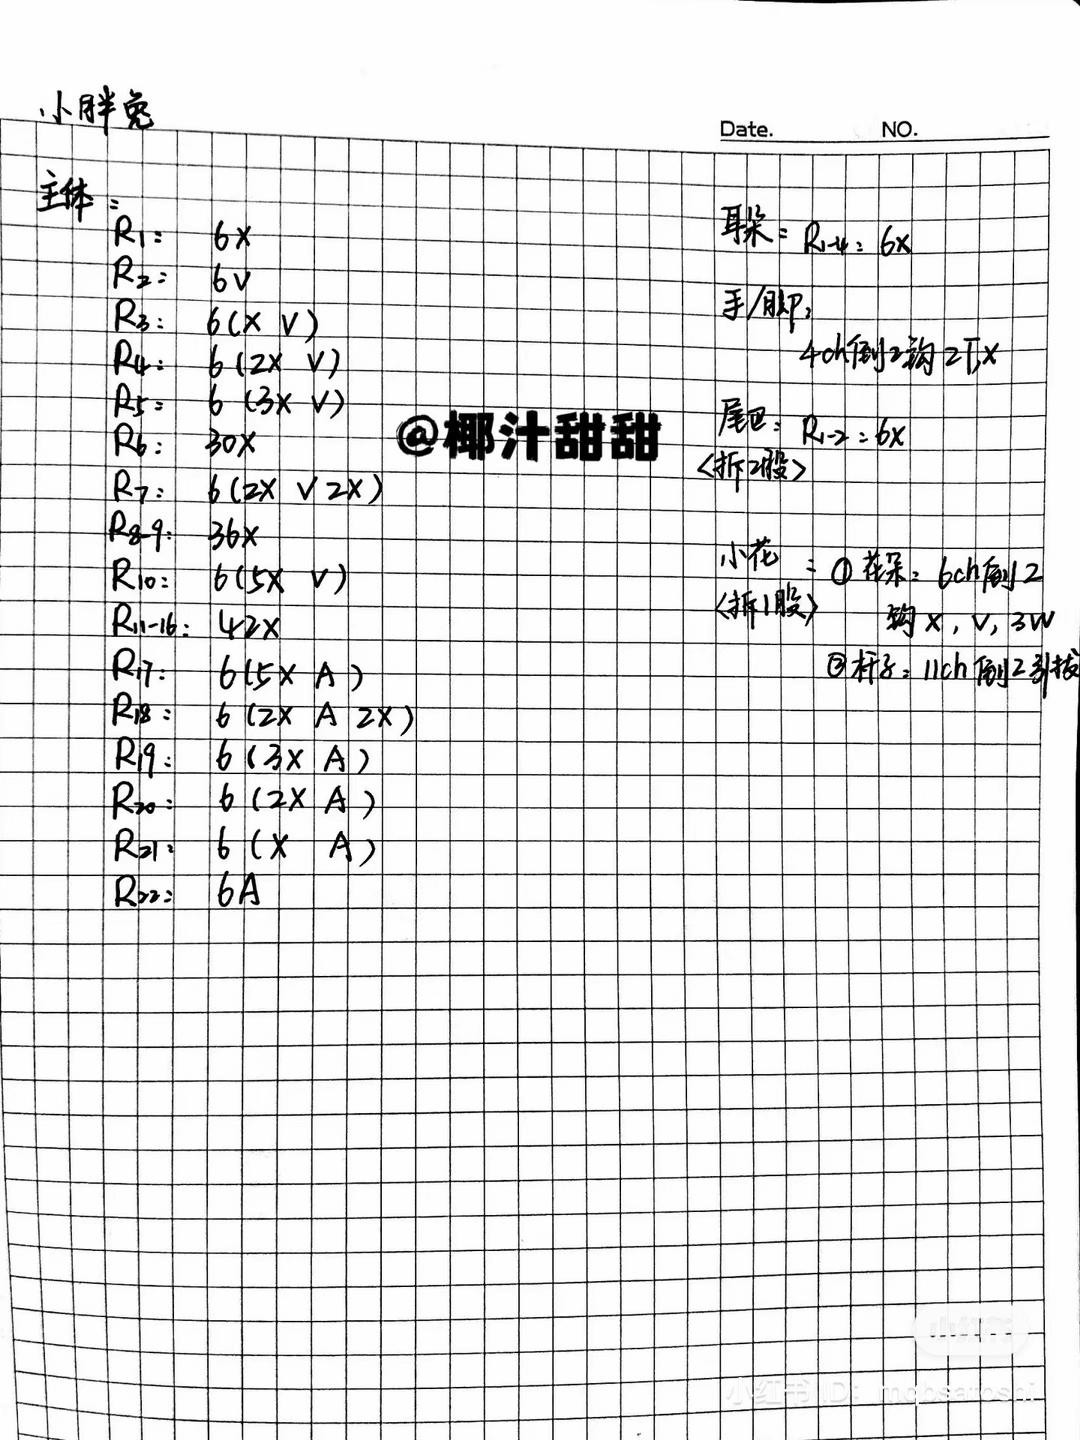 小胖兔
Date. NO.
主体：
R1: 6X
R2: 6V
R3: 6(X V)
R4: 6(2X V)
R5: 6(3X V)
R6: 30X
R7: 6(2X V 2X)
R8-9: 36X
R10: 6(5X V)
R11-16: 42X
R17: 6(5X A)
R18: 6(2X A 2X)
R19: 6(3X A)
R20: 6(2X A)
R21: 6(X A)
R22: 6A
@椰汁甜甜
耳朵：R1-4: 6X
手/脚：
4ch倒2钩2T,X
尾巴：R1-2: 6X
<拆2股>
小花：①花朵：6ch倒2
<拆1股> 钩X，V，3W
②杆子：11ch倒2引拔
小红书
小红书 ID: mqbsatoshi